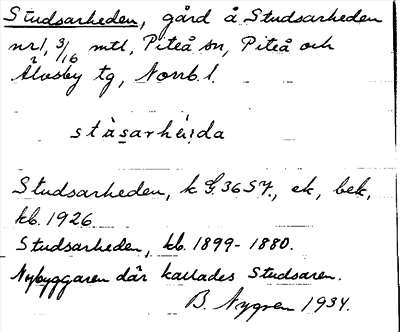 Studsarheden, gård å Studsarheden
nr 1, 3/16 mtl, Piteå sn, Piteå och
Älvsby tg, Norrb. l.
Studsarheden, ek, bek,
kb. 1926.
Studsarheden, kb. 1899-1880.
Nybyggaren där kallades Studsaren.
B. Nygren 1934.